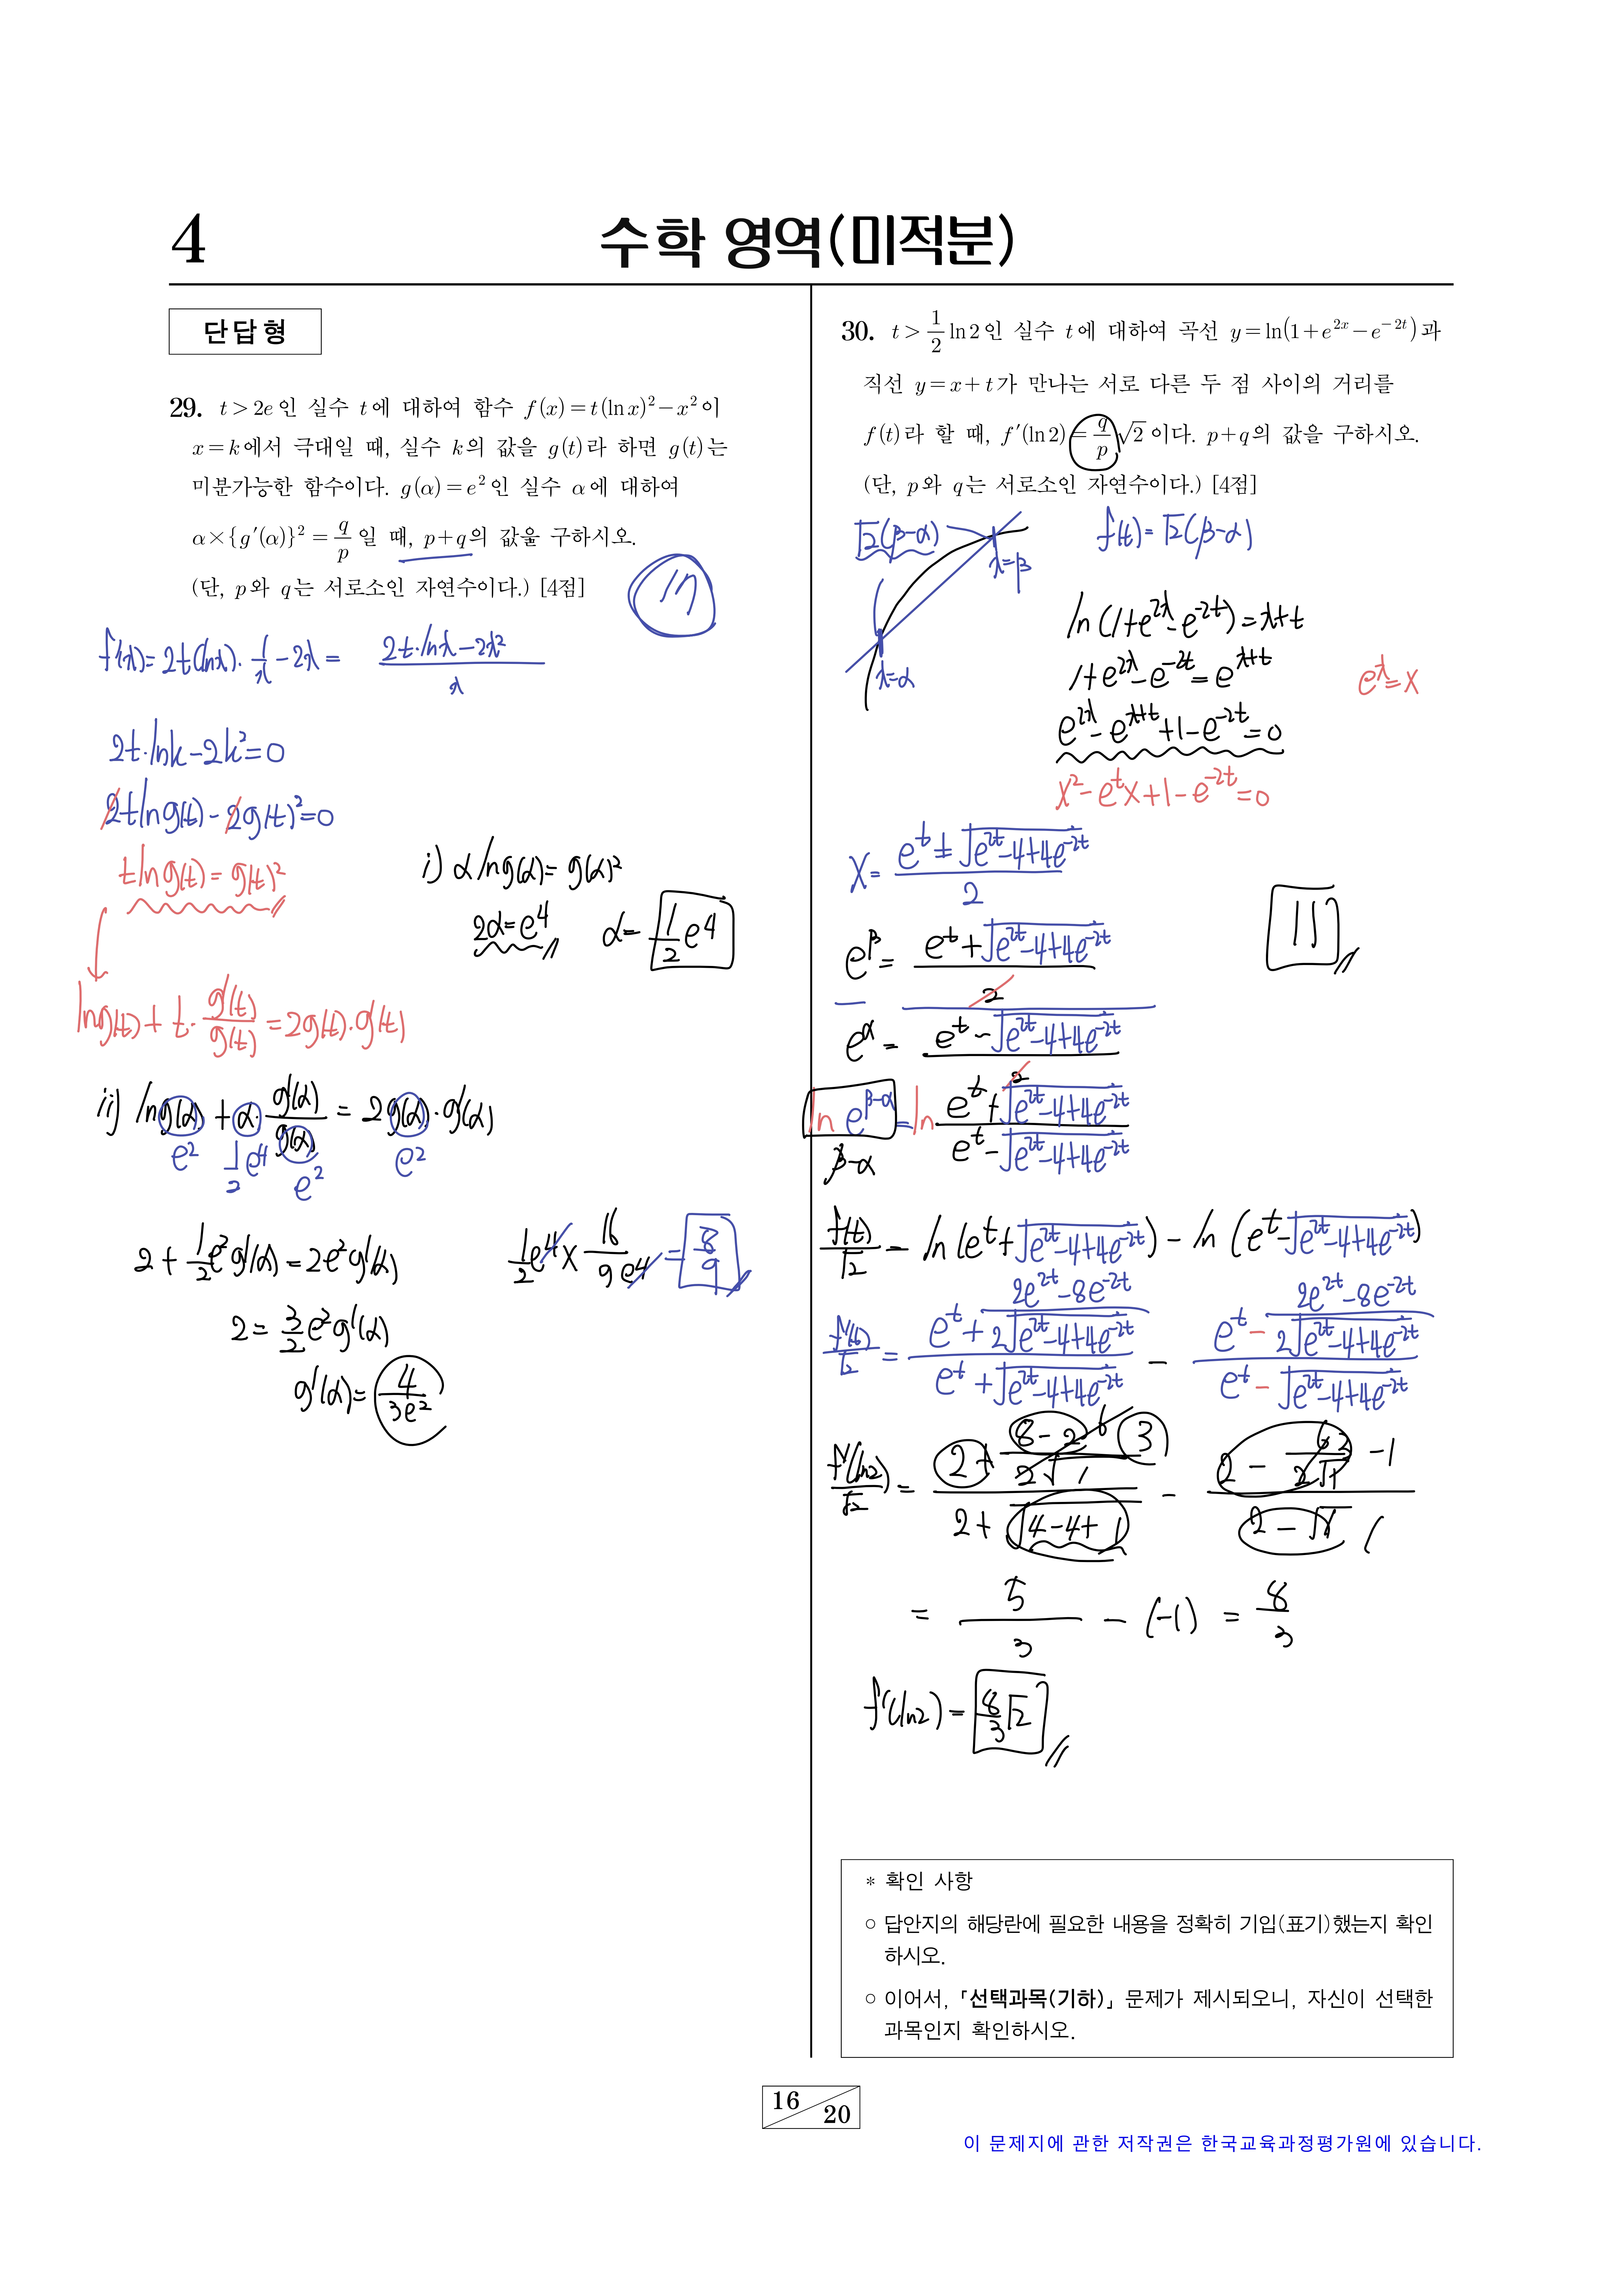 4
수학 영역(미적분)
단답형
29. t > 2e 인 실수 t에 대하여 함수 f(x) = t(ln x)² − x² 이
x = k에서 극대일 때, 실수 k의 값을 g(t)라 하면 g(t)는
미분가능한 함수이다. g(α) = e² 인 실수 α에 대하여
α × {g′(α)}² = q/p 일 때, p+q의 값을 구하시오.
(단, p와 q는 서로소인 자연수이다.) [4점]
17
f′(x) = 2t(lnx)·1/x − 2x = (2t·lnx − 2x²)/x
2t·lnk − 2k² = 0
2t ln g(t) − 2g(t)² = 0
t ln g(t) = g(t)²
i) α ln g(α) = g(α)²
2α = e⁴ α = 1/2 e⁴
ln g(t) + t·g′(t)/g(t) = 2g(t)·g′(t)
ii) ln g(α) + α·g′(α)/g(α) = 2g(α)·g′(α)
e² 1/2 e⁴ e² e²
2 + 1/2 e² g′(α) = 2e² g′(α)
1/2 e⁴ × 16/9e⁴ = 8/9
2 = 3/2 e² g′(α)
g′(α) = 4/3e²
30. t > 1/2 ln 2 인 실수 t에 대하여 곡선 y = ln(1 + e^{2x} − e^{−2t}) 과
직선 y = x + t가 만나는 서로 다른 두 점 사이의 거리를
f(t)라 할 때, f′(ln 2) = q/p √2 이다. p+q의 값을 구하시오.
(단, p와 q는 서로소인 자연수이다.) [4점]
√2(β−α)
x=β
x=α
f(t) = √2(β−α)
ln(1+e^{2x}−e^{−2t}) = x+t
1+e^{2x}−e^{−2t} = e^{x+t}
e^x = X
e^{2x} − e^{x+t} + 1 − e^{−2t} = 0
X² − e^t X + 1 − e^{−2t} = 0
X = (e^t ± √(e^{2t}−4+4e^{−2t}))/2
11
e^β = (e^t + √(e^{2t}−4+4e^{−2t}))/2
e^α = (e^t − √(e^{2t}−4+4e^{−2t}))/2
ln e^{β−α} = ln (e^t + √(e^{2t}−4+4e^{−2t}))/(e^t − √(e^{2t}−4+4e^{−2t}))
β−α
f(t)/√2 = ln(e^t + √(e^{2t}−4+4e^{−2t})) − ln(e^t − √(e^{2t}−4+4e^{−2t}))
f′(t)/√2 = (e^t + (2e^{2t}−8e^{−2t})/(2√(e^{2t}−4+4e^{−2t})))/(e^t + √(e^{2t}−4+4e^{−2t})) − (e^t − (2e^{2t}−8e^{−2t})/(2√(e^{2t}−4+4e^{−2t})))/(e^t − √(e^{2t}−4+4e^{−2t}))
f′(ln2)/√2 = (2 + (8−2)/(2√1) 6 3)/(2 + √(4−4+1)) − (2 − 6/(2√1) −1)/(2 − √1) 1
= 5/3 − (−1) = 8/3
f′(ln2) = 8/3 √2
* 확인 사항
○ 답안지의 해당란에 필요한 내용을 정확히 기입(표기)했는지 확인
하시오.
○ 이어서, 「선택과목(기하)」 문제가 제시되오니, 자신이 선택한
과목인지 확인하시오.
16
20
이 문제지에 관한 저작권은 한국교육과정평가원에 있습니다.